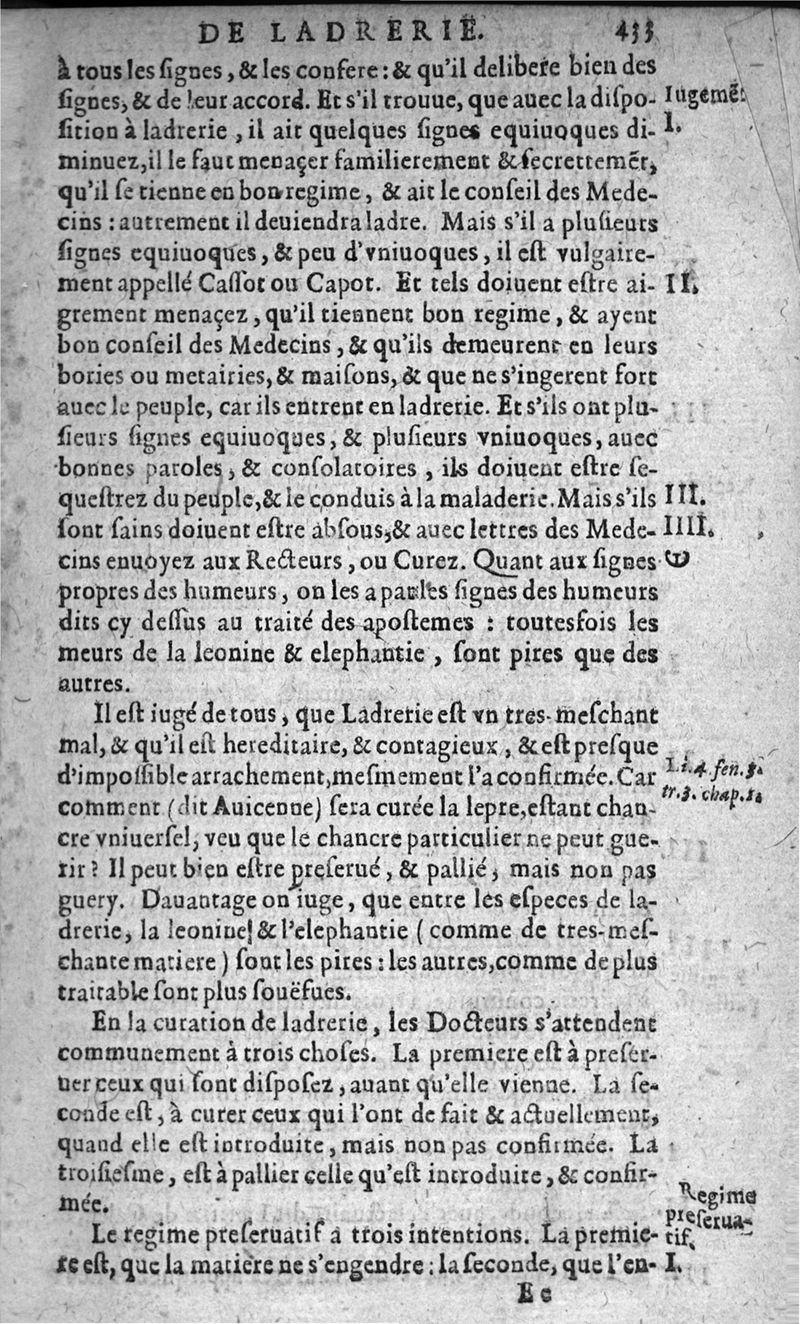 DE LADRERIE. 433
à tous les ſignes, & les confere : & qu'il delibere bien des
ſignes, & de leur accord. Et s'il trouue, que auec la diſpo- Iugemẽt
ſition à ladrerie, il ait quelques ſignes equiuoques di- I.
minuez, il le faut menaçer familierement & ſecrettemẽt,
qu'il ſe tienne en bon regime, & ait le conſeil des Mede-
cins : autrement il deuiendra ladre. Mais s'il a pluſieurs
ſignes equiuoques, & peu d'vniuoques, il eſt vulgaire-
ment appellé Caſſot ou Capot. Et tels doiuent eſtre ai- II.
grement menaçez, qu'il tiennent bon regime, & ayent
bon conſeil des Medecins, & qu'ils demeurent en leurs
bories ou metairies, & maiſons, & que ne s'ingerent fort
auec le peuple, car ils entrent en ladrerie. Et s'ils ont plu-
ſieurs ſignes equiuoques, & pluſieurs vniuoques, auec
bonnes paroles, & conſolatoires, ils doiuent eſtre ſe-
queſtrez du peuple, & le conduis à la maladerie. Mais s'ils III.
ſont ſains doiuent eſtre abſous, & auec lettres des Mede- IIII.
cins enuoyez aux Recteurs, ou Curez. Quant aux ſignes
propres des humeurs, on les a par les ſignes des humeurs
dits cy deſſus au traité des apoſtemes : toutesfois les
meurs de la leonine & elephantie, ſont pires que des
autres.
Il eſt iugé de tous, que Ladrerie eſt vn tres-meſchant
mal, & qu'il eſt hereditaire, & contagieux, & eſt preſque
d'impoſſible arrachement, meſmement l'a confirmée. Car Li. 4. fen. 3.
comment (dit Auicenne) ſera curée la lepre, eſtant chan- tr. 3. chap. 1.
cre vniuerſel, veu que le chancre particulier ne peut gue-
rir ? Il peut bien eſtre preſerué, & pallié, mais non pas
guery. Dauantage on iuge, que entre les eſpeces de la-
drerie, la leonine, & l'elephantie (comme de tres-meſ-
chante matiere) ſont les pires : les autres, comme de plus
traitable ſont plus ſouëfues.
En la curation de ladrerie, les Docteurs s'attendent
communement à trois choſes. La premiere eſt à preſer-
uer ceux qui ſont diſpoſez, auant qu'elle vienne. La ſe-
conde eſt, à curer ceux qui l'ont de fait & actuellement,
quand elle eſt introduite, mais non pas confirmée. La
troiſieſme, eſt à pallier celle qu'eſt introduite, & confir-
mée. Regime
Le regime preſeruatif a trois intentions. La premie- preſeruatif,
re eſt, que la matiere ne s'engendre : la ſeconde, que l'en- I.
Ee